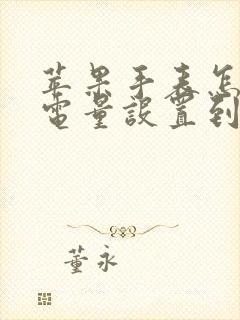 苹果手表怎
电量设置到
董永